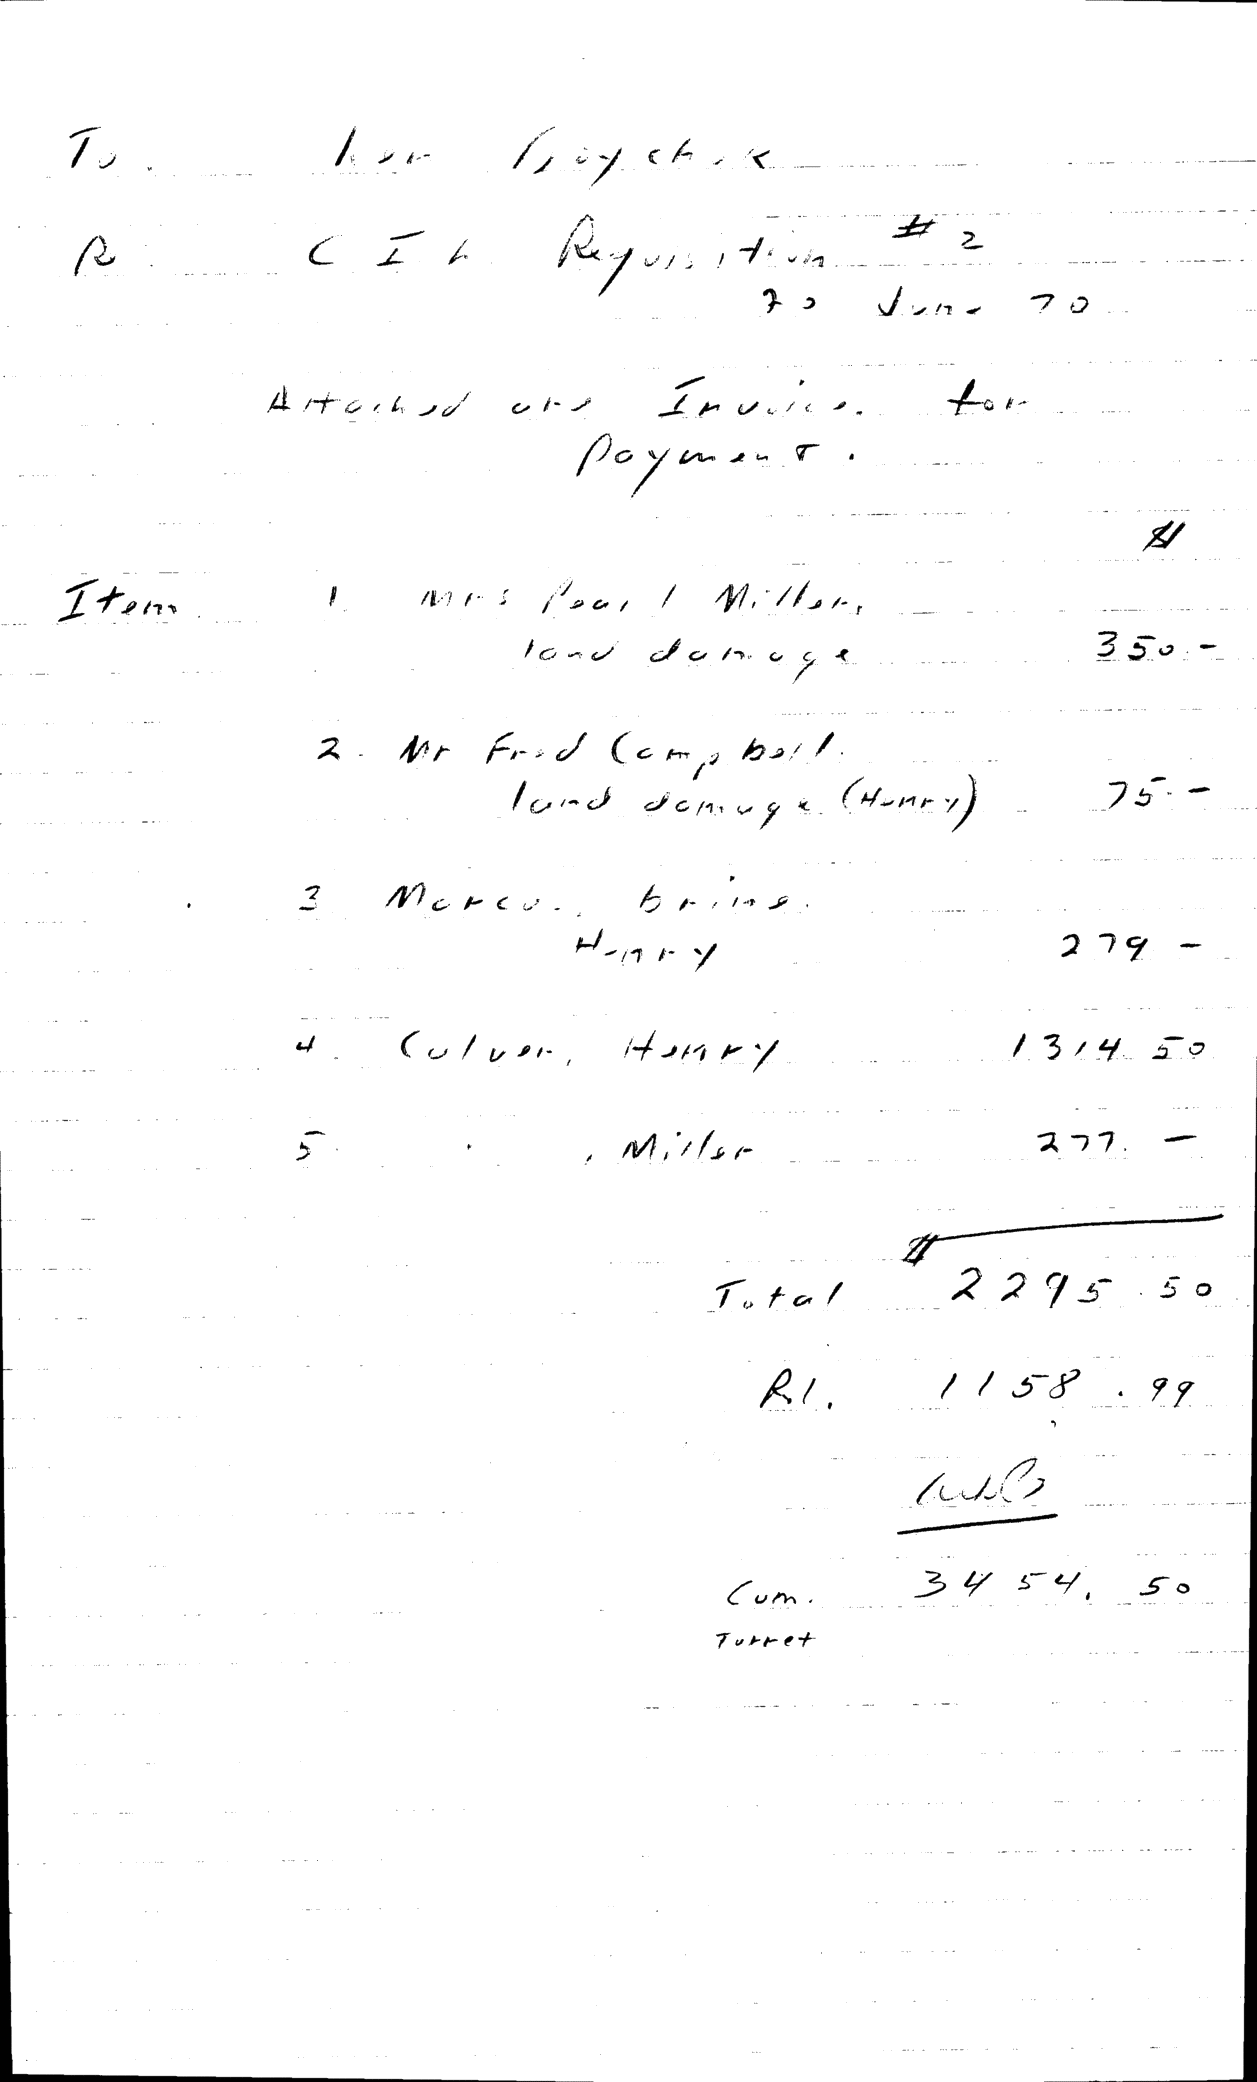 To.
C I L Requisition #2
30 June 70
Attached are Invoices for
Payment.
$
Item 1. Mrs Pearl Miller,
land damage 350.-
2. Mr Fred Campbell.
land damage (Henry) 75.-
3 Marcus, brine.
Henry 279 -
4. Culver, Henry 1314.50
5. " , Miller 277. -
$
Total 2295.50
R1. 1158.99
Cum. 3454.50
Turret